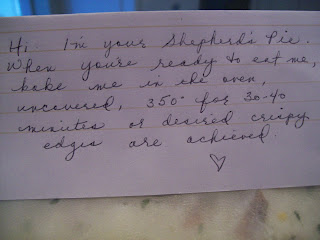 Hi. I'm your Shepherd's Pie.
When you're ready to eat me,
bake me in the oven,
uncovered, 350° for 30-40
minutes or desired crispy
edges are achieved.
♡